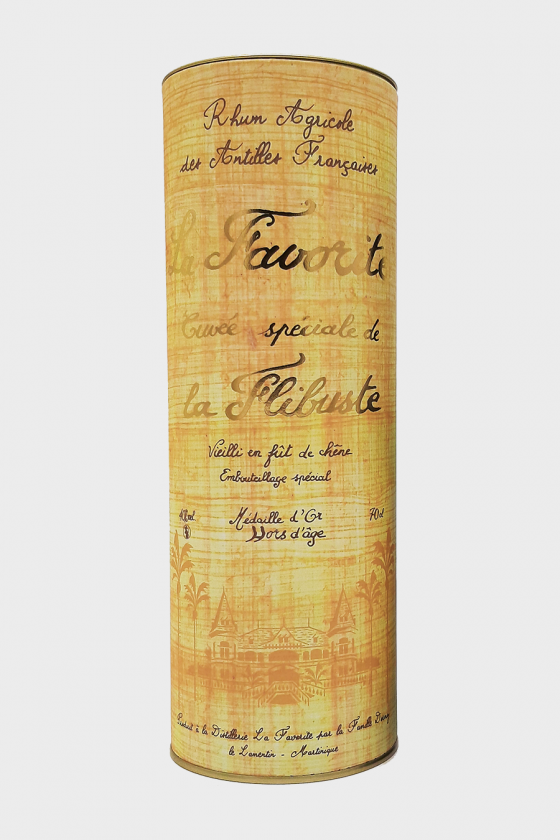 Rhum Agricole
des Antilles Françaises
La Favorite
Cuvée spéciale de
la Flibuste
Vieilli en fût de chêne
Embouteillage spécial
Médaille d'Or 70cl
Hors d'âge
Produit à la Distillerie La Favorite par la Famille
le Lamentin - Martinique